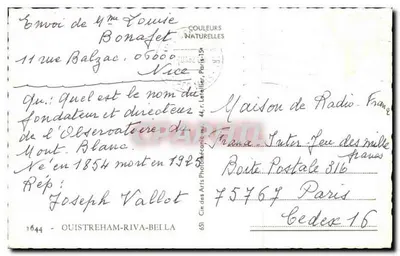 Envoi de Mme Louise
Bonafet
11 rue Balzac. 06000
Nice
Qu: Quel est le nom du
fondateur et directeur
de l'Observatoire du
Mont. Blanc.
Né en 1854 mort en 1925
Rép:
Joseph Vallot
COULEURS
NATURELLES
Maison de Radio. France
France. Inter. Jeu des mille
francs
Boite Postale 316
75767 Paris
Cedex 16
1644 - OUISTREHAM-RIVA-BELLA